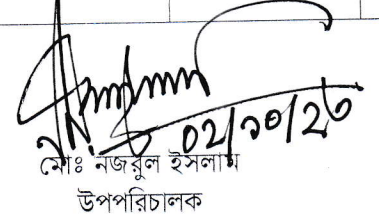 ০২/১০/২৩
মোঃ নজরুল ইসলাম
উপপরিচালক